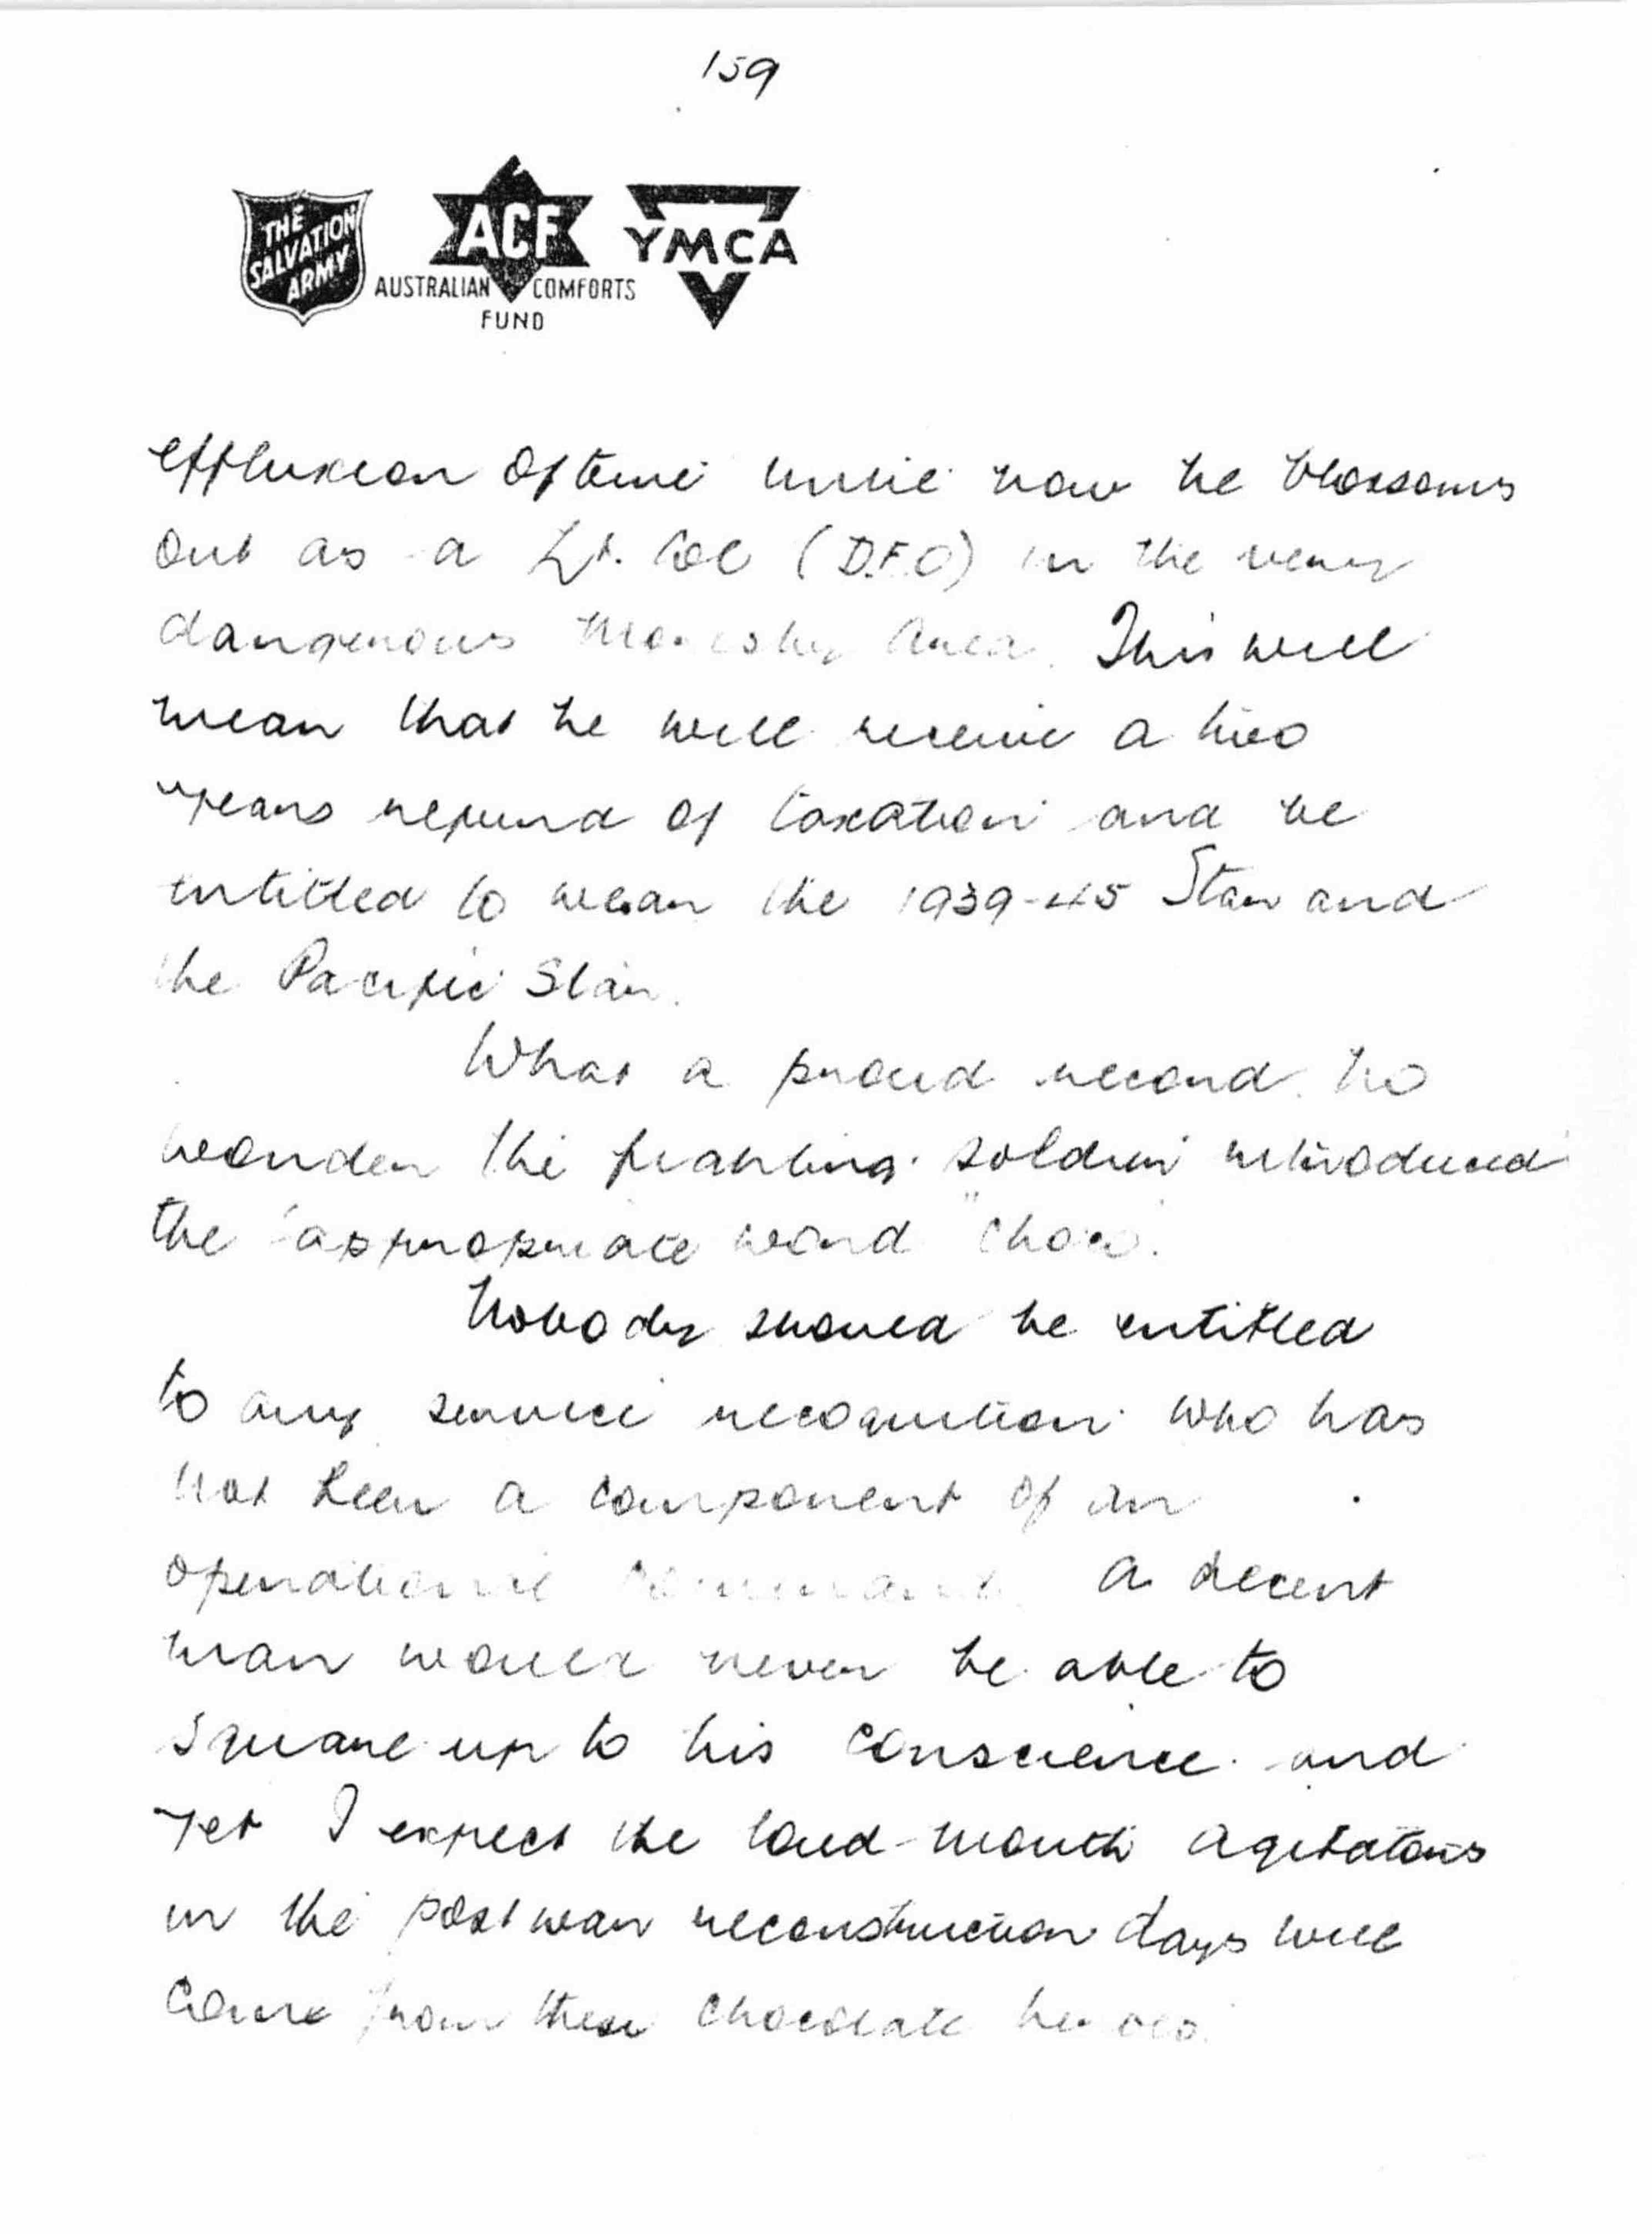 159
THE SALVATION ARMY
ACF
AUSTRALIAN COMFORTS
FUND
YMCA
effluxion of time until now he blossoms
out as a Lt. Col (D.F.O) in the very
dangerous Moresby Area. This will
mean that he will receive a two
years refund of taxation and be
entitled to wear the 1939-45 Star and
the Pacific Star.
What a proud record. No
wonder the fighting soldier introduced
the appropriate word "Choco".
Nobody should be entitled
to any service recognition who has
not been a component of an
operational command. A decent
man would never be able to
square up to his conscience and
yet I expect the loud-mouth agitators
in the post war reconstruction days will
come from these chocolate heroes.